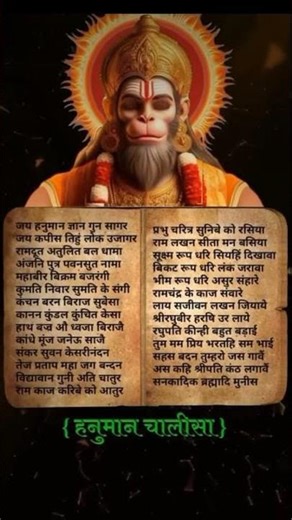 जय हनुमान ज्ञान गुन सागर
जय कपीस तिहुं लोक उजागर
रामदूत अतुलित बल धामा
अंजनि पुत्र पवनसुत नामा
महाबीर बिक्रम बजरंगी
कुमति निवार सुमति के संगी
कंचन बरन बिराज सुबेसा
कानन कुंडल कुंचित केसा
हाथ बज्र औ ध्वजा बिराजै
कांधे मूंज जनेऊ साजै
संकर सुवन केसरीनंदन
तेज प्रताप महा जग बन्दन
विद्यावान गुनी अति चातुर
राम काज करिबे को आतुर
प्रभु चरित्र सुनिबे को रसिया
राम लखन सीता मन बसिया
सूक्ष्म रूप धरि सियहिं दिखावा
बिकट रूप धरि लंक जरावा
भीम रूप धरि असुर संहारे
रामचंद्र के काज संवारे
लाय सजीवन लखन जियाये
श्रीरघुबीर हरषि उर लाये
रघुपति कीन्ही बहुत बड़ाई
तुम मम प्रिय भरतहि सम भाई
सहस बदन तुम्हरो जस गावैं
अस कहि श्रीपति कंठ लगावैं
सनकादिक ब्रह्मादि मुनीस
{ हनुमान चालीसा }